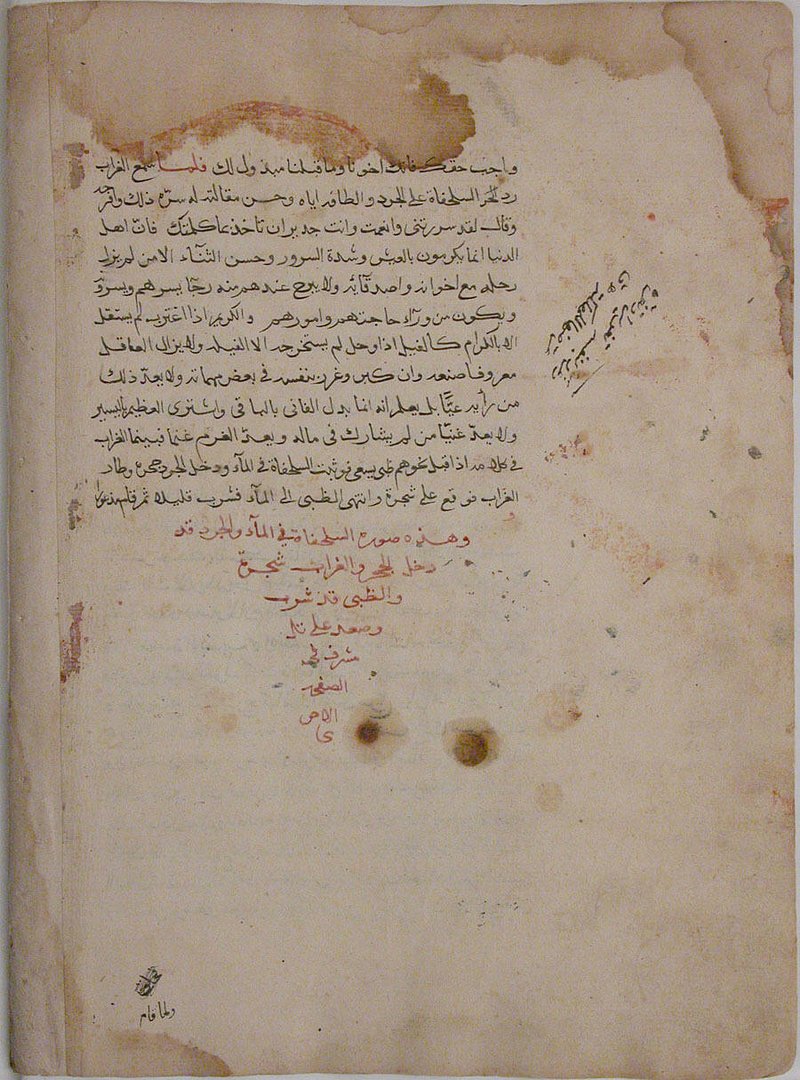 واجب حقك فانك اخونا وما قبلنا مبذول لك فلما سمع الغراب
رد السلحفاة على الجرذ والطافه اياه وحسن مقالته له سره ذلك وافرحه
وقال لقد سررتني وانعمت وانت جديران تاخذ بما كلمتك فان اهل
الدنيا انما يكرمون بالعيش وشدة السرور وحسن الثنآء الامن لم يزل
رحله مع اخوانه واصدقآئه ولا يبرح عندهم منه رجا يسرهم ويسرونه
ويكون من ورآء حاجتهم وامورهم والكريم اذا اغترب لم يستقل
الا بالكرام كالفيل اذا وحل لم يستخرجه الا الفيلة ولا يزال العاقل
معروفا صنعه وان كبر وغرر بنفسه في بعض مهماته ولا يعد ذلك
من رأيه عيبا بل يعلم انه انما بدل الفاني بالباقي واشترى العظيم باليسير
ولا يعد غنيا من لم يشارك في ماله ويعد الغرم غنما فبينما الغراب
في كلامه اذ اقبل نحوهم ظبي يسعى فوثبت السلحفاة في المآء ودخل الجرذ جحره وطار
الغراب فوقع على شجرة وانتهى الظبي الى المآء فشرب قليلا ثم قام مذعورا
وهذه صورة السلحفاة في المآء والجرذ قد
دخل الجحر والغراب شجرة
والظبي قد شرب
وصعد على تل
مشرف في
الصفحه
الاخر
ى
ولما قام